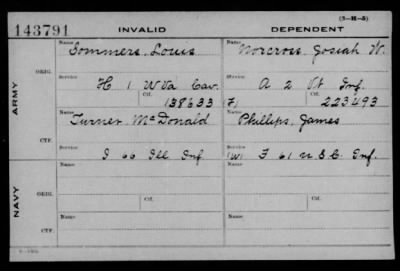 (3-H-5)
143791 INVALID DEPENDENT
Name Sommers, Louis Name Norcross, Josiah W.
ORIG.
Service H 1 W Va Cav. Service A 2 Vt Inf.
Ctf. 138633 F, Ctf. 223493
ARMY
Name Turner McDonald Name Phillips, James
CTF.
Service I 66 Ill Inf Service (W) F 61 N.C. Inf.
Name Name
ORIG.
Ctf. Ctf.
NAVY
Name Name
CTF.